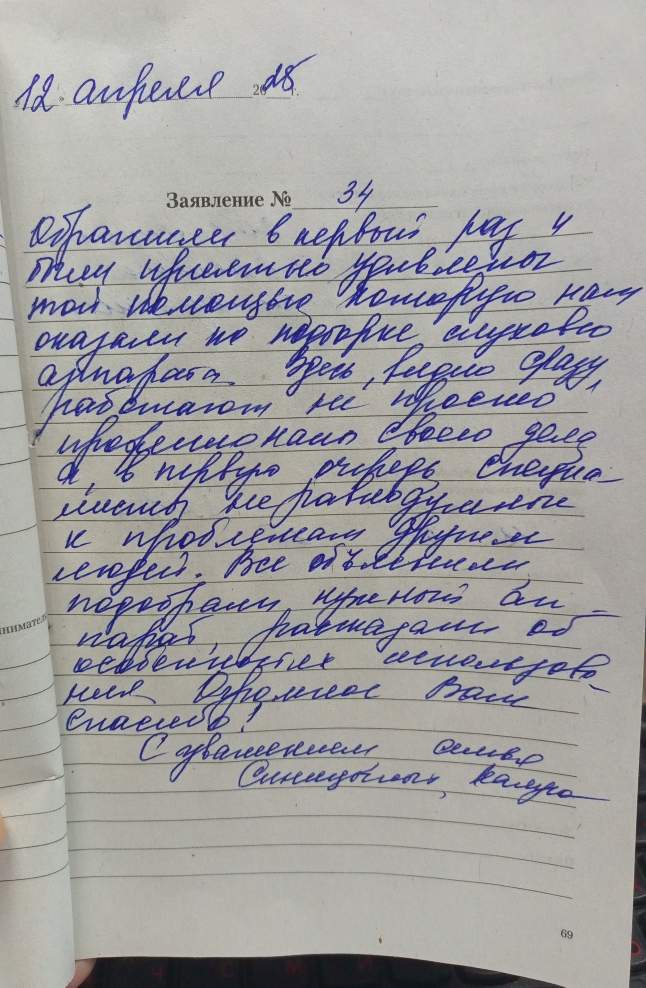 12 апреля 2025г.
Заявление № 34
Обратились в первый раз и
были приятно удивлены
той помощью которую нам
оказали по подборке слухово
аппарата. Здесь, видно сразу,
работают не просто
профессионалы своего дела
а, в первую очередь специа-
листы неравнодушные
к проблемам других
людей. Все объяснили
подобрали нужный ап-
парат, рассказали об
особенностях использова-
ния. Огромное Вам
спасибо!
С уважением семья
Синицыных, Калуга
69